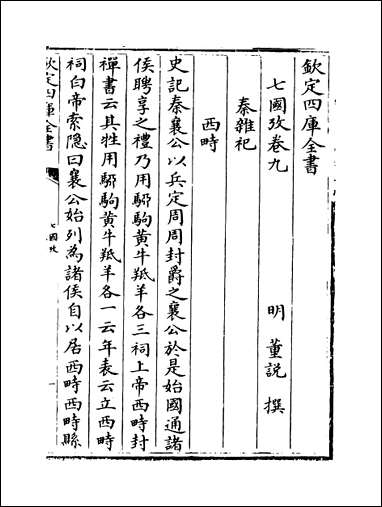 欽定四庫全書
七國攷卷九
明　董説　撰
秦雜祀
西畤
史記秦襄公以兵定周周封爵之襄公於是始國通諸
侯聘享之禮乃用騮駒黄牛羝羊各三祠上帝西畤封
禪書云其牲用騮駒黄牛羝羊各一云年表云立西畤
祠白帝索隐曰襄公始列為諸侯自以居西畤西畤縣
欽定四庫全書
七國攷
一